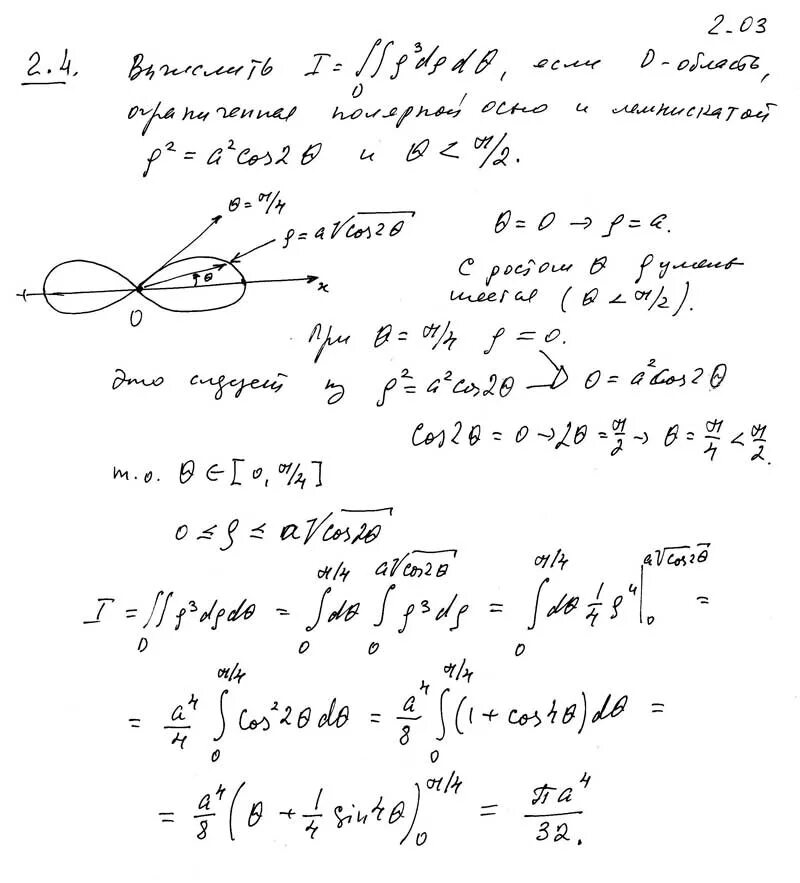 2.03
2.4. Вычислить I = ∬_D ρ³dρdθ, если D-область,
ограниченная полярной осью и лемнискатой
ρ² = a²cos2θ и θ < π/2.
θ = π/4
ρ = a√cos2θ
θ
x
O
θ = 0 → ρ = a.
С ростом θ ρ умень
шается (θ < π/2).
При θ = π/4 ρ = 0.
Это следует из ρ² = a²cos2θ → 0 = a²cos2θ
cos2θ = 0 → 2θ = π/2 → θ = π/4 < π/2.
т.о. θ ∈ [0, π/4]
0 ≤ ρ ≤ a√cos2θ
I = ∬_D ρ³dρdθ = ∫_0^{π/4} dθ ∫_0^{a√cos2θ} ρ³dρ = ∫_0^{π/4} dθ 1/4 ρ⁴ |_0^{a√cos2θ} =
= a⁴/4 ∫_0^{π/4} cos²2θ dθ = a⁴/8 ∫_0^{π/4} (1 + cos4θ)dθ =
= a⁴/8 (θ + 1/4 sin4θ)_0^{π/4} = πa⁴/32.